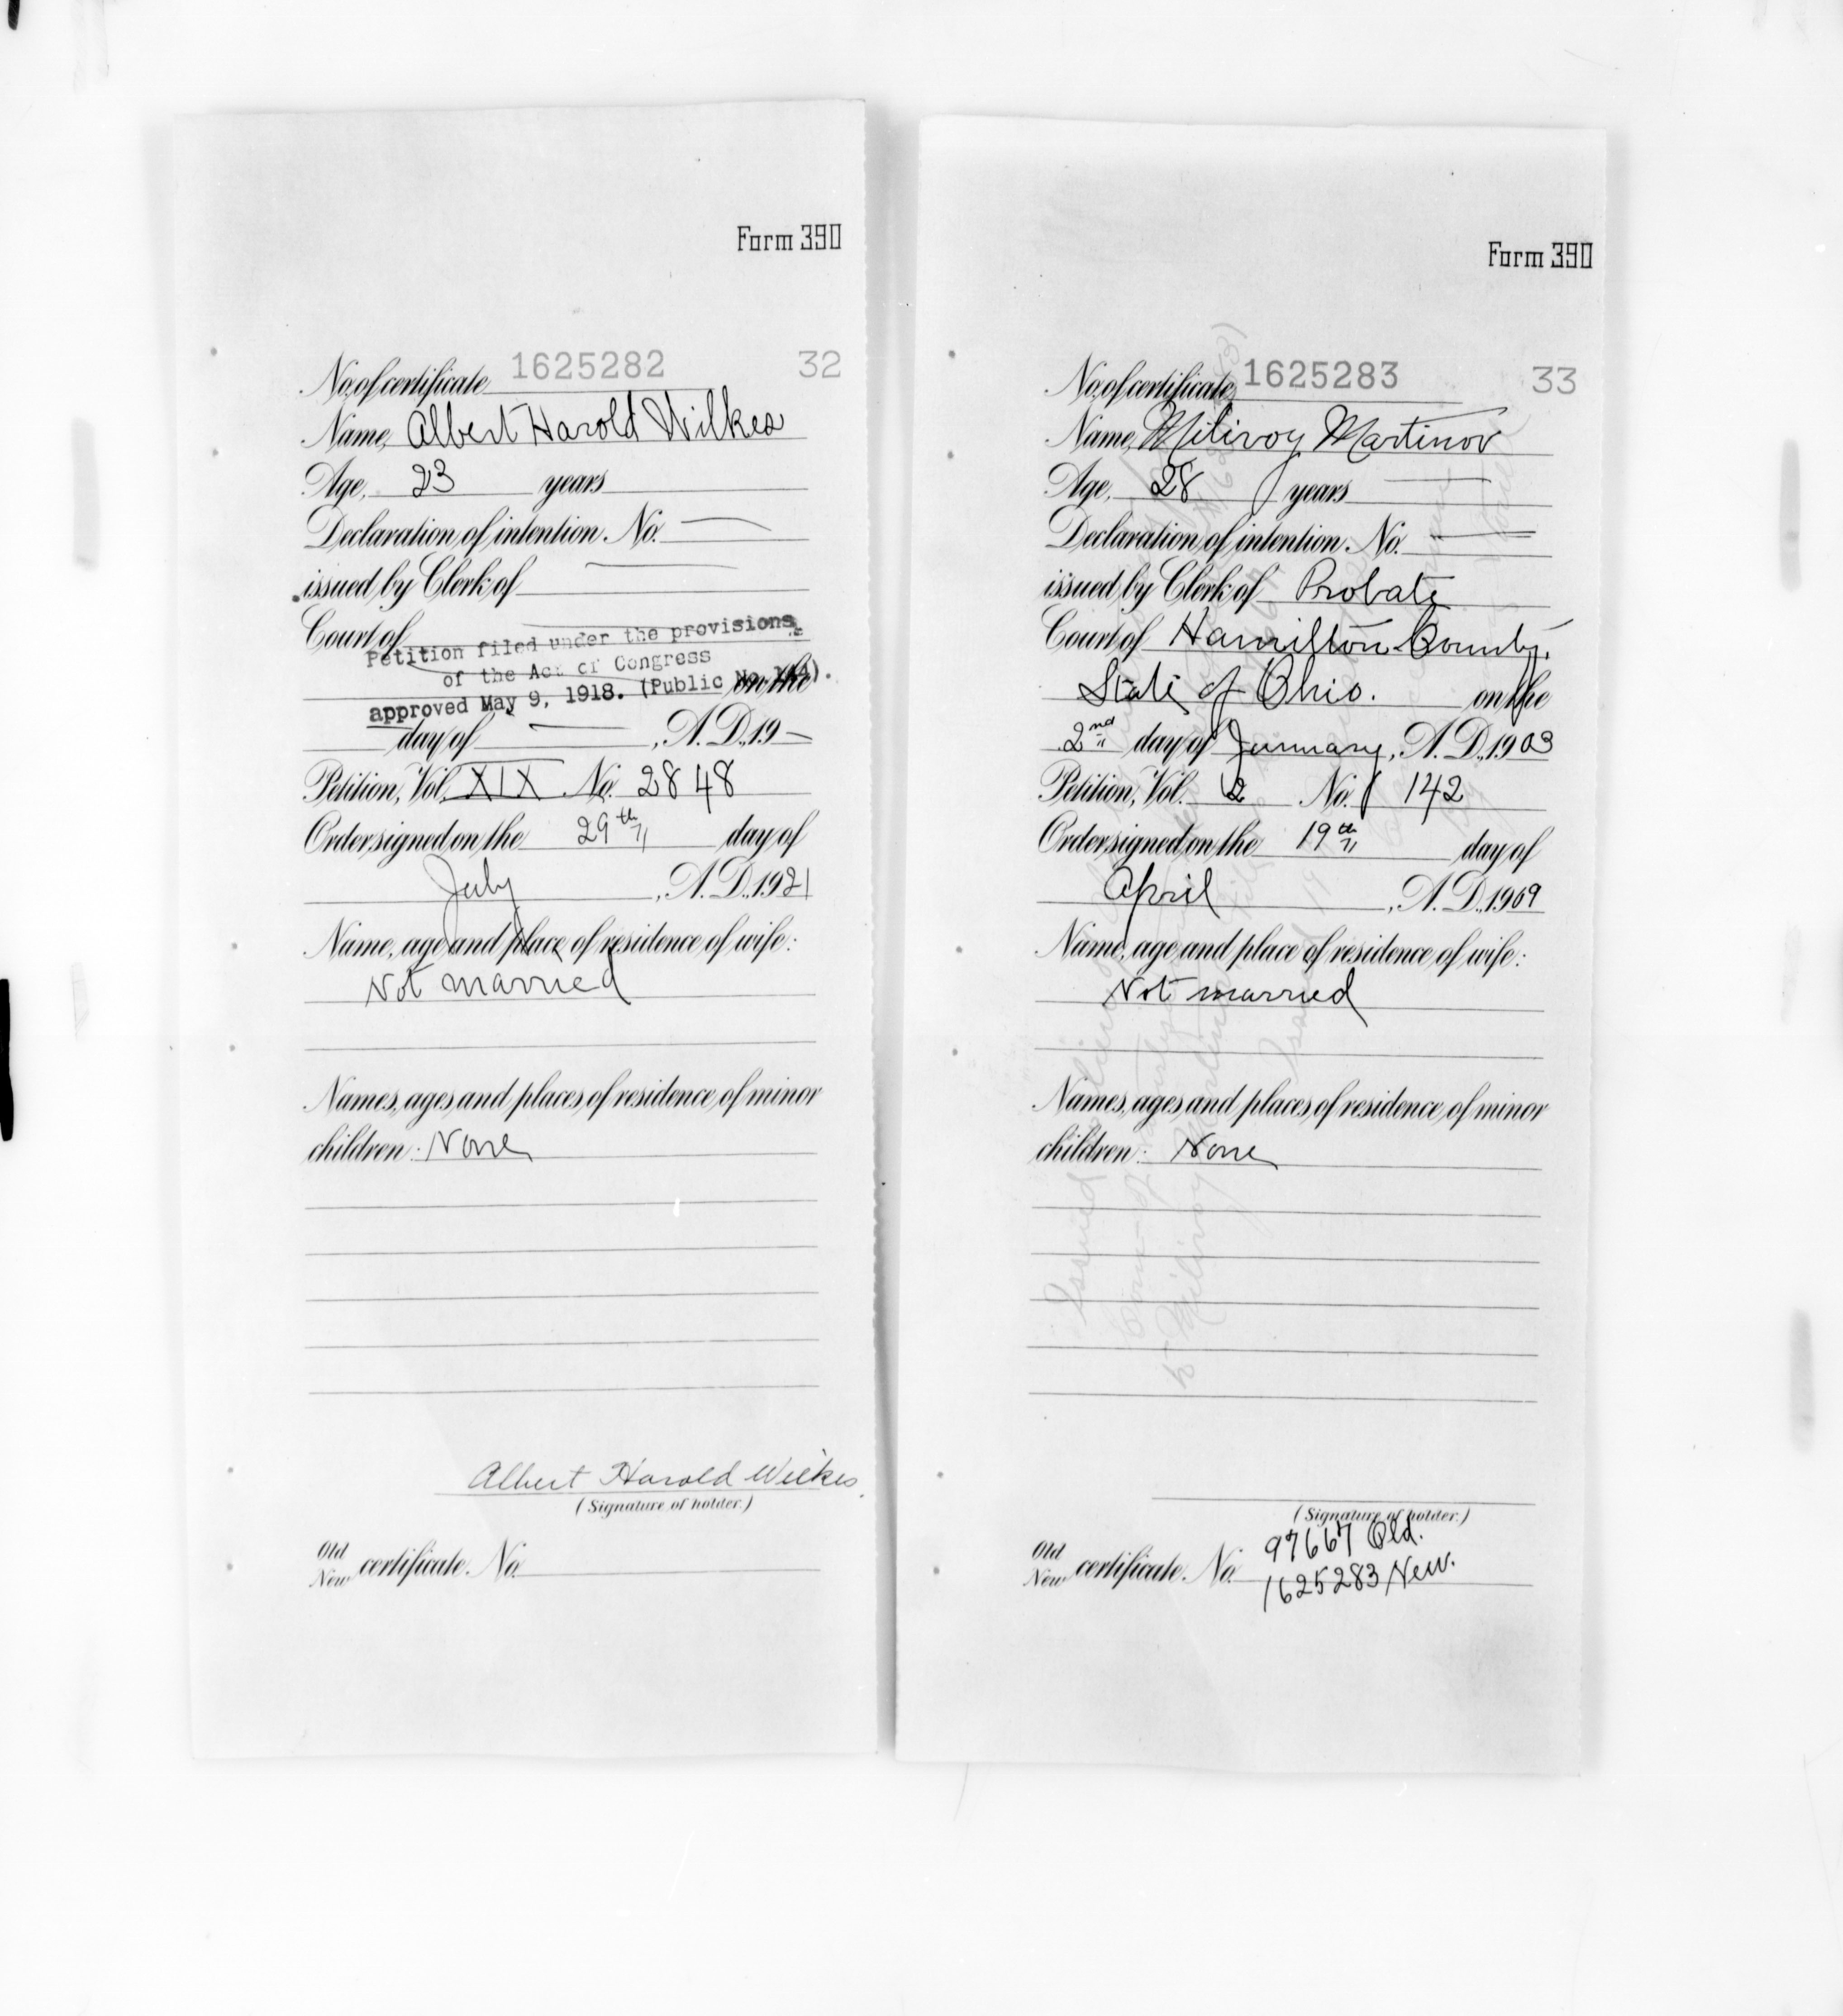 Form 390
No. of certificate 1625282 32
Name, Albert Harold Wilkes
Age, 23 years
Declaration of intention. No. —
issued by Clerk of —
Court of
Petition filed under the provisions
of the Act of Congress
approved May 9, 1918. (Public No. 144).
on the
day of — , A.D., 19 —
Petition, Vol. XIX No. 2848
Order signed on the 29th day of
July , A.D., 1921
Name, age and place of residence of wife:
Not married
Names, ages and places of residence of minor
children: None
Albert Harold Wilkes
(Signature of holder.)
Old
New certificate. No.
Form 390
No. of certificate 1625283 33
Name, Milivoy Martinov
Age, 28 years —
Declaration of intention. No. —
issued by Clerk of Probate
Court of Hamilton County,
State of Ohio. on the
2nd day of January, A.D., 1903
Petition, Vol. 2 No. 142
Order signed on the 19th day of
April , A.D., 1909
Name, age and place of residence of wife:
Not married
Names, ages and places of residence of minor
children: None
(Signature of holder.)
97667 Old.
Old
New certificate. No. 1625283 New.